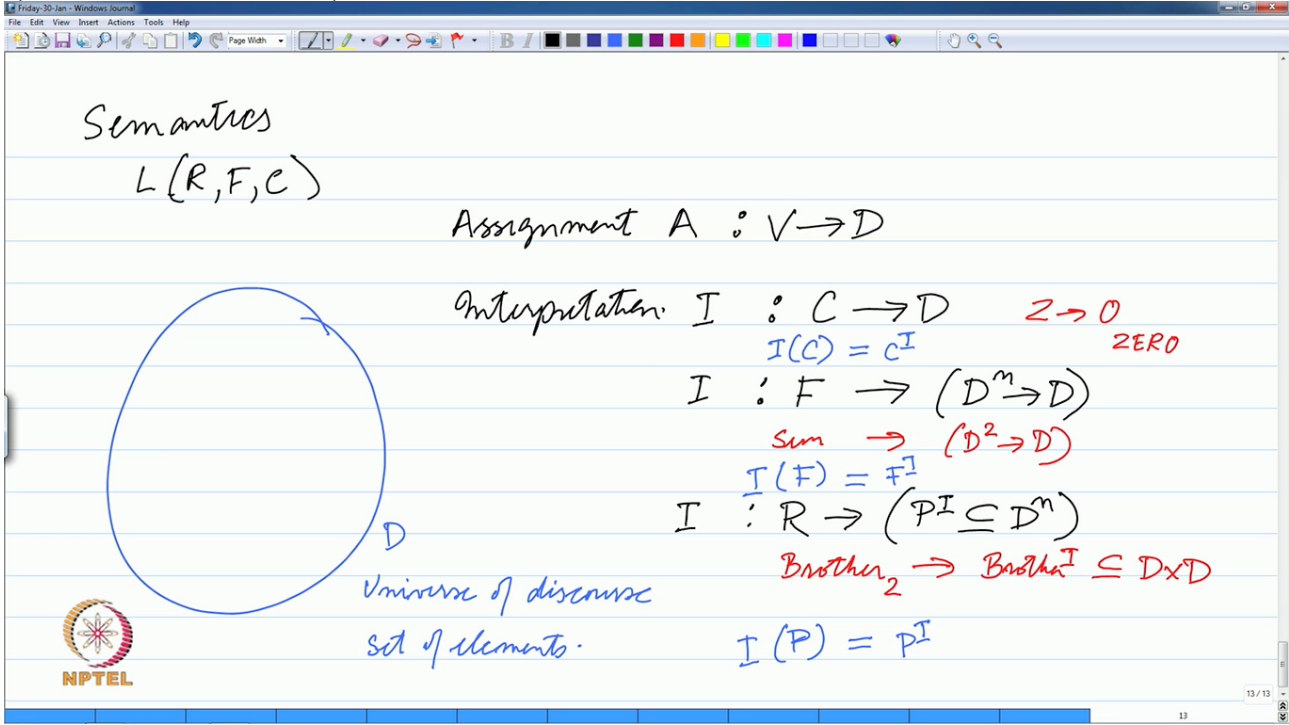 Friday-30-Jan - Windows Journal
File Edit View Insert Actions Tools Help
Page Width
Semantics
L (R, F, C)
Assignment A : V → D
Interpretation. I : C → D Z → 0
ZERO
I(C) = C^I
I : F → (D^n → D)
Sum → (D^2 → D)
I (F) = F^I
I : R → (P^I ⊆ D^n)
D
Brother_2 → Brother^I ⊆ D×D
Universe of discourse
set of elements.
I (P) = P^I
NPTEL
13 / 13
13